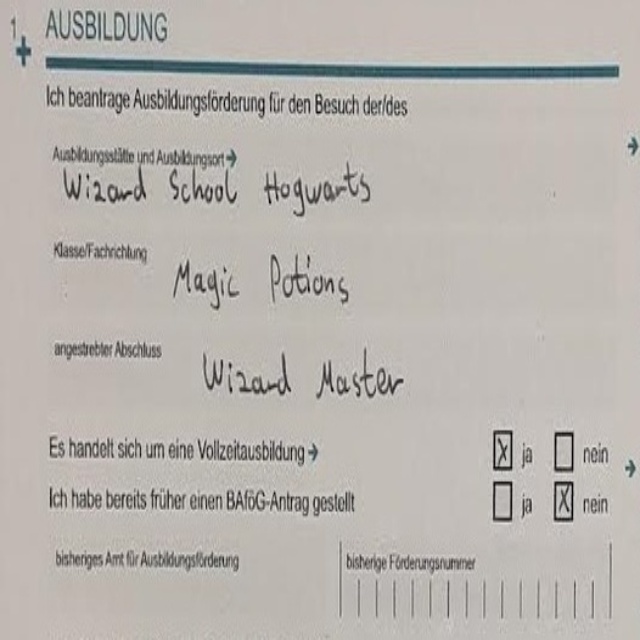 1 AUSBILDUNG
Ich beantrage Ausbildungsförderung für den Besuch der/des
Ausbildungsstätte und Ausbildungsort
Wizard School Hogwarts
Klasse/Fachrichtung
Magic Potions
angestrebter Abschluss
Wizard Master
Es handelt sich um eine Vollzeitausbildung → X ja nein
Ich habe bereits früher einen BAföG-Antrag gestellt ja X nein
bisheriges Amt für Ausbildungsförderung bisherige Förderungsnummer